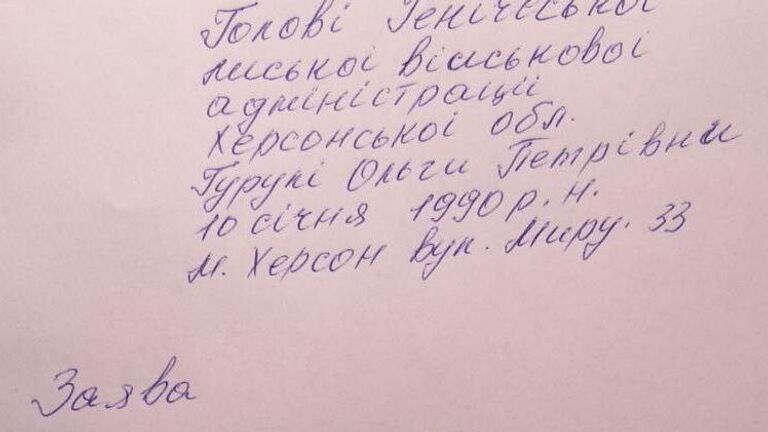 Голові Генічеської
миської військової
адміністрації
Херсонської обл.
Гурулі Ольги Петрівни
10 січня 1990 р. н.
м. Херсон вул. Миру. 33
Заява